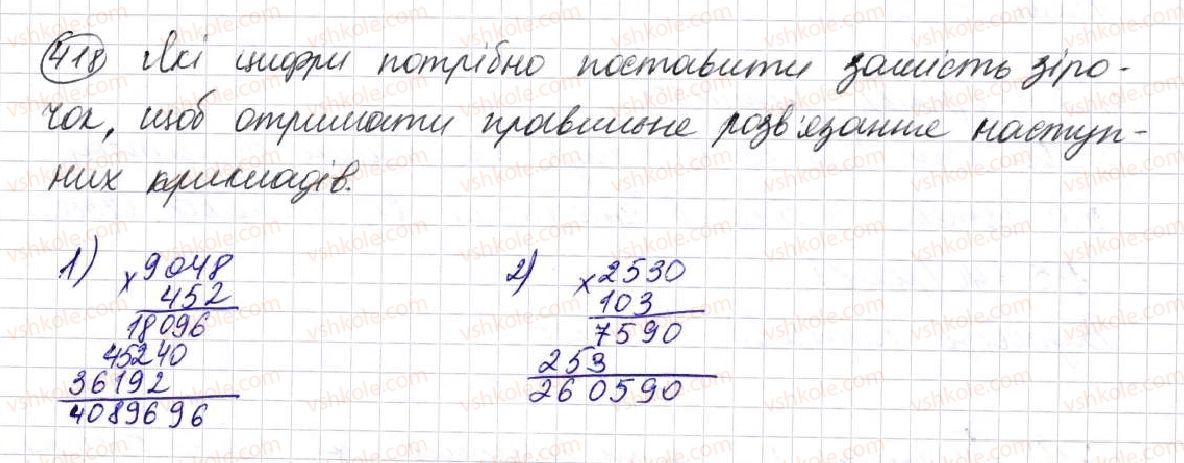 418 Які цифри потрібно поставити замість зіро-
чок, щоб отримати правильне розв'язання наступ-
них прикладів.
1) × 9048
452
18096
45240
36192
4089696
2) × 2530
103
7590
253
260590